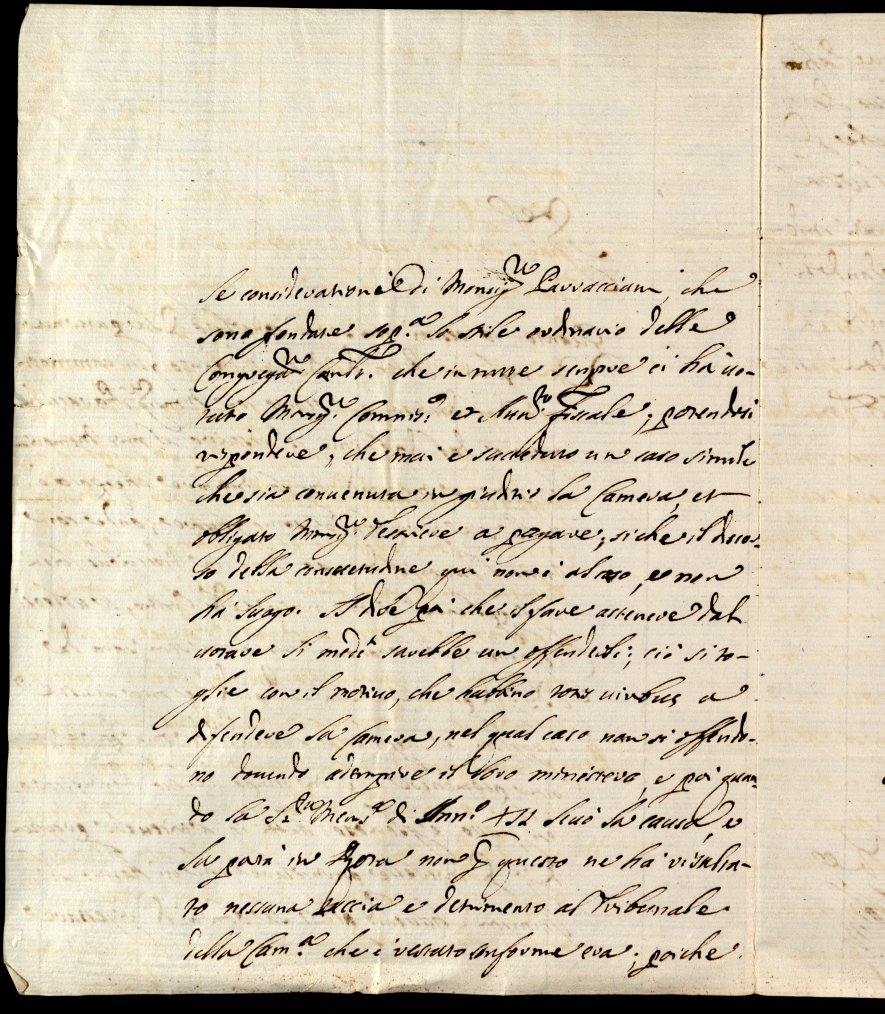 Le considerationi di Monsig.re Pavracciani, che
sono fondate sop.a lo stile ordinario delle
Congreg.ni Cam.li che in tutte sempre ci hà uo-
tato Mons.re Commis.o et Aud.re fiscale; potendosi
rispondere, che mai è succeduto un caso simile
che sia conuenuta in giuditio la Camera, et
obligato Mons.re Tesoriere a pagare; siche il disco-
so della consuetudine qui non è al caso, e non
hà luogo. Il dire poi che il fare astenere dal
uotare li med.i sarebbe un offenderli; ciò si to-
glie con il motiuo, che habbino totis viribus a
difendere la Camera, nel qual caso non si offendo-
no douendo adempire il loro ministero, e poi quan-
do la S.ta Mem.a di Inn.o XII leuò la causa, e
la portò in Rota non p questo ne hà risulta-
to nessuna taccia e detrimento al Tribunale
della Cam.a che è restato conforme era; poiche